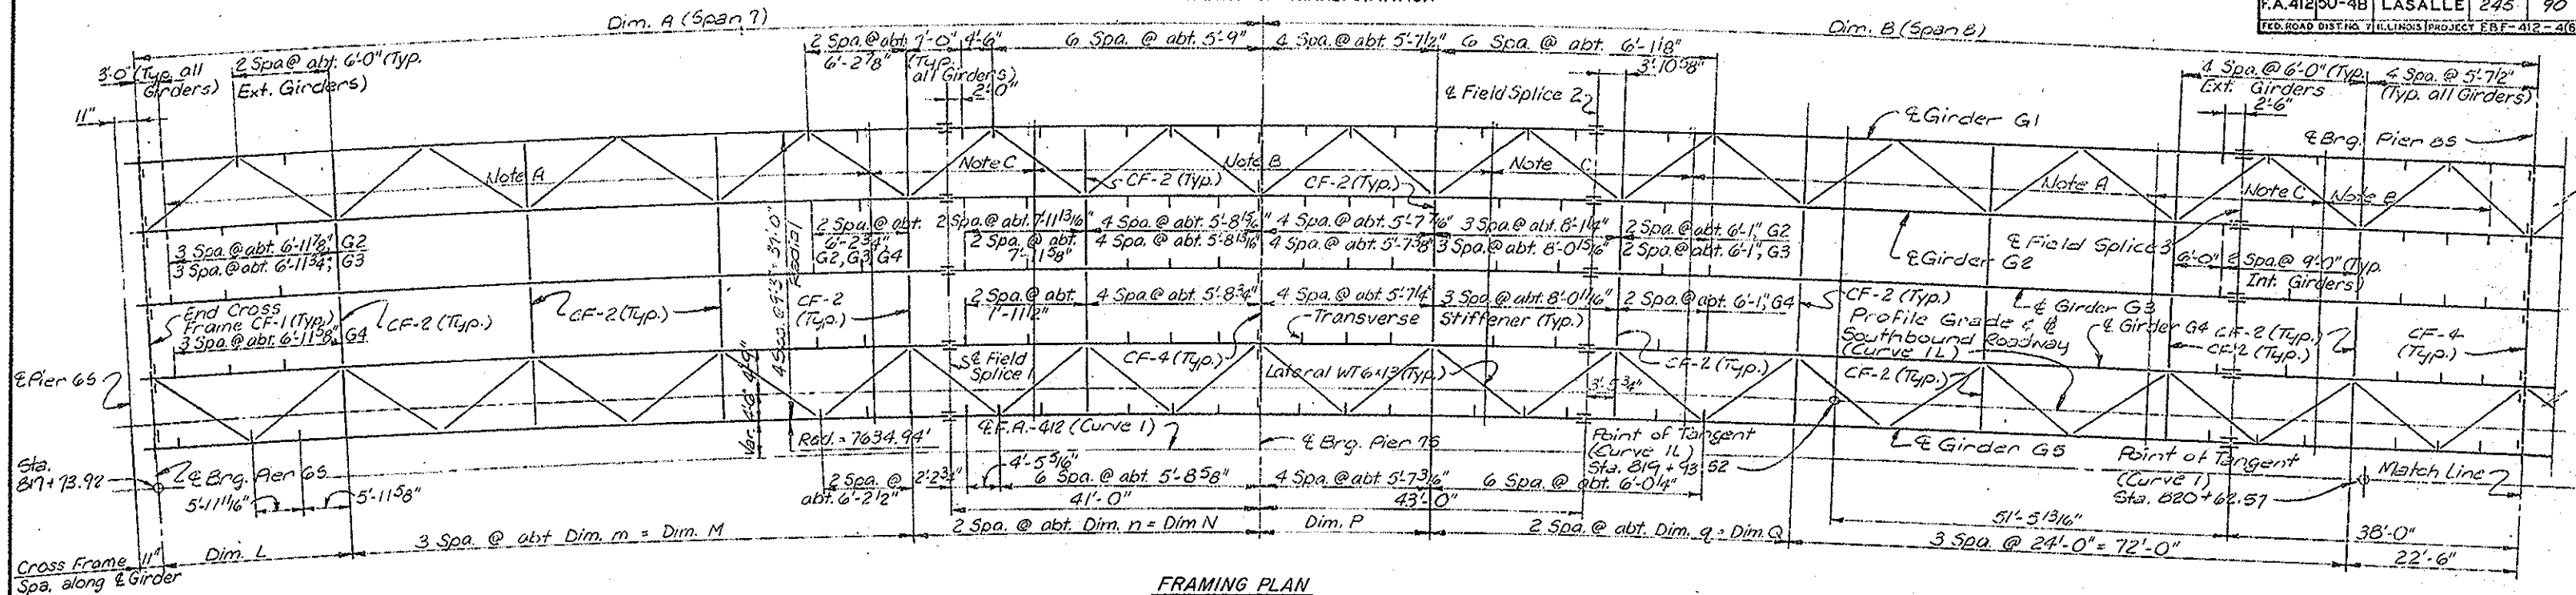 F.A.412 50-4B LASALLE 245 90
FED. ROAD DIST. NO. 7 ILLINOIS PROJECT EBF-412-4(6
Dim. A (Span 7)
Dim. B (Span 8)
3'-0" (Typ. all Girders)
2 Spa @ abt. 6'-0" (Typ. Ext. Girders)
11"
2 Spa. @ abt. 6'-2 7/8"
7'-0" (Typ. all Girders)
4'-6"
2'-0"
6 Spa. @ abt. 5'-9"
4 Spa. @ abt. 5'-7 1/2"
6 Spa. @ abt. 6'-1 1/8"
3'-10 5/8"
℄ Field Splice 2
4 Spa. @ 6'-0" (Typ. Ext. Girders)
2'-6"
4 Spa. @ 5'-7 1/2" (Typ. all Girders)
℄ Girder G1
℄ Brg. Pier 8S
Note A
Note C
Note B
Note C
Note A
Note C
Note B
CF-2 (Typ.)
CF-2 (Typ.)
3 Spa. @ abt. 6'-11 7/8", G2
3 Spa. @ abt. 6'-11 3/4", G3
2 Spa. @ abt. 6'-2 3/4" G2, G3, G4
2 Spa. @ abt. 7'-11 13/16"
4 Spa. @ abt. 5'-8 15/16"
4 Spa. @ abt. 5'-7 7/16"
3 Spa. @ abt. 8'-1 1/4"
2 Spa. @ abt. 6'-1", G2
2 Spa. @ abt. 7'-11 5/8"
4 Spa. @ abt. 5'-8 13/16"
4 Spa. @ abt. 5'-7 3/8"
3 Spa. @ abt. 8'-0 15/16"
2 Spa. @ abt. 6'-1", G3
4 Spa. @ 9'-3" = 37'-0"
Radial
℄ Girder G2
℄ Field Splice 3
6'-0"
2 Spa. @ 9'-0" (Typ. Int. Girders)
End Cross Frame CF-1 (Typ.)
3 Spa. @ abt. 6'-11 5/8", G4
CF-2 (Typ.)
CF-2 (Typ.)
CF-2 (Typ.)
2 Spa. @ abt. 7'-11 1/2"
4 Spa. @ abt. 5'-8 3/4"
4 Spa. @ abt. 5'-7 1/4"
3 Spa. @ abt. 8'-0 11/16"
2 Spa. @ abt. 6'-1", G4
Transverse Stiffener (Typ.)
CF-2 (Typ.)
℄ Girder G3
Profile Grade & ℄ Southbound Roadway (Curve 1L)
℄ Girder G4
CF-2 (Typ.)
CF-2 (Typ.)
CF-4 (Typ.)
℄ Pier 6S
℄ Field Splice 1
CF-4 (Typ.)
Lateral WT 6x13 (Typ.)
CF-2 (Typ.)
CF-2 (Typ.)
3'-5 3/4"
Rad. = 7634.94'
℄ F.A.-412 (Curve 1)
℄ Brg. Pier 7S
Point of Tangent (Curve 1L) Sta. 819+93.52
℄ Girder G5
Point of Tangent (Curve 1) Sta. 820+62.57
Match Line
Sta. 817+73.92
℄ Brg. Pier 6S
5'-11 11/16"
5'-11 5/8"
2 Spa. @ abt. 6'-2 1/2"
2'-2 3/4"
4'-5 5/16"
6 Spa. @ abt. 5'-8 5/8"
4 Spa. @ abt. 5'-7 3/16"
6 Spa. @ abt. 6'-0 1/4"
41'-0"
43'-0"
51'-5 13/16"
38'-0"
Cross Frame Spa. along ℄ Girder
11"
Dim. L
3 Spa. @ abt Dim. m = Dim. M
2 Spa. @ abt. Dim. n = Dim N
Dim. P
2 Spa. @ abt. Dim. q = Dim. Q
3 Spa. @ 24'-0" = 72'-0"
22'-6"
FRAMING PLAN